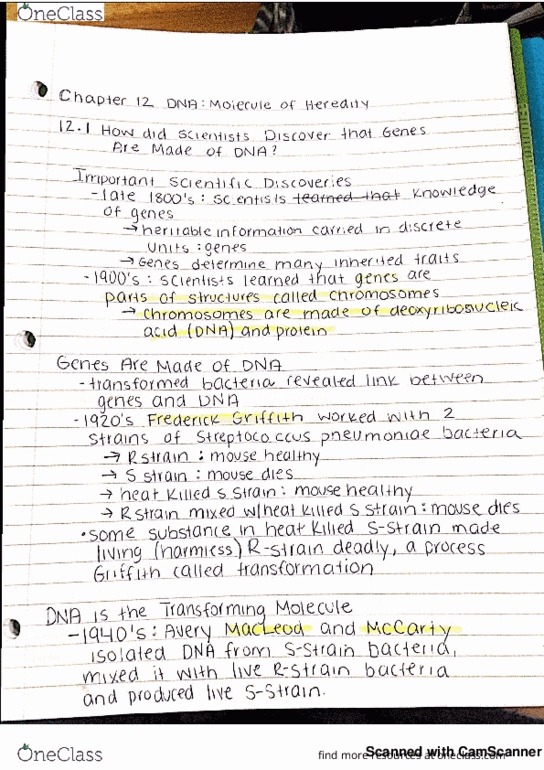 OneClass
Chapter 12 DNA: Molecule of Heredity
12.1 How did Scientists Discover that Genes
Are Made of DNA?
Important Scientific Discoveries
- late 1800's: scientists learned that knowledge
of genes
→ heritable information carried in discrete
units: genes
→ Genes determine many inherited traits
- 1900's: scientists learned that genes are
parts of structures called chromosomes
→ chromosomes are made of deoxyribonucleic
acid (DNA) and protein
Genes Are Made of DNA
- transformed bacteria revealed link between
genes and DNA
- 1920's Frederick Griffith worked with 2
strains of Streptococcus pneumoniae bacteria
→ R strain: mouse healthy
→ S strain: mouse dies
→ heat killed S strain: mouse healthy
→ R strain mixed w/heat killed S strain: mouse dies
• some substance in heat killed S-strain made
living (harmless) R-strain deadly, a process
Griffith called transformation
DNA is the Transforming Molecule
- 1940's: Avery MacLeod and McCarty
isolated DNA from S-strain bacteria,
mixed it with live R-strain bacteria
and produced live S-strain.
OneClass
find more resources at oneclass.com
Scanned with CamScanner